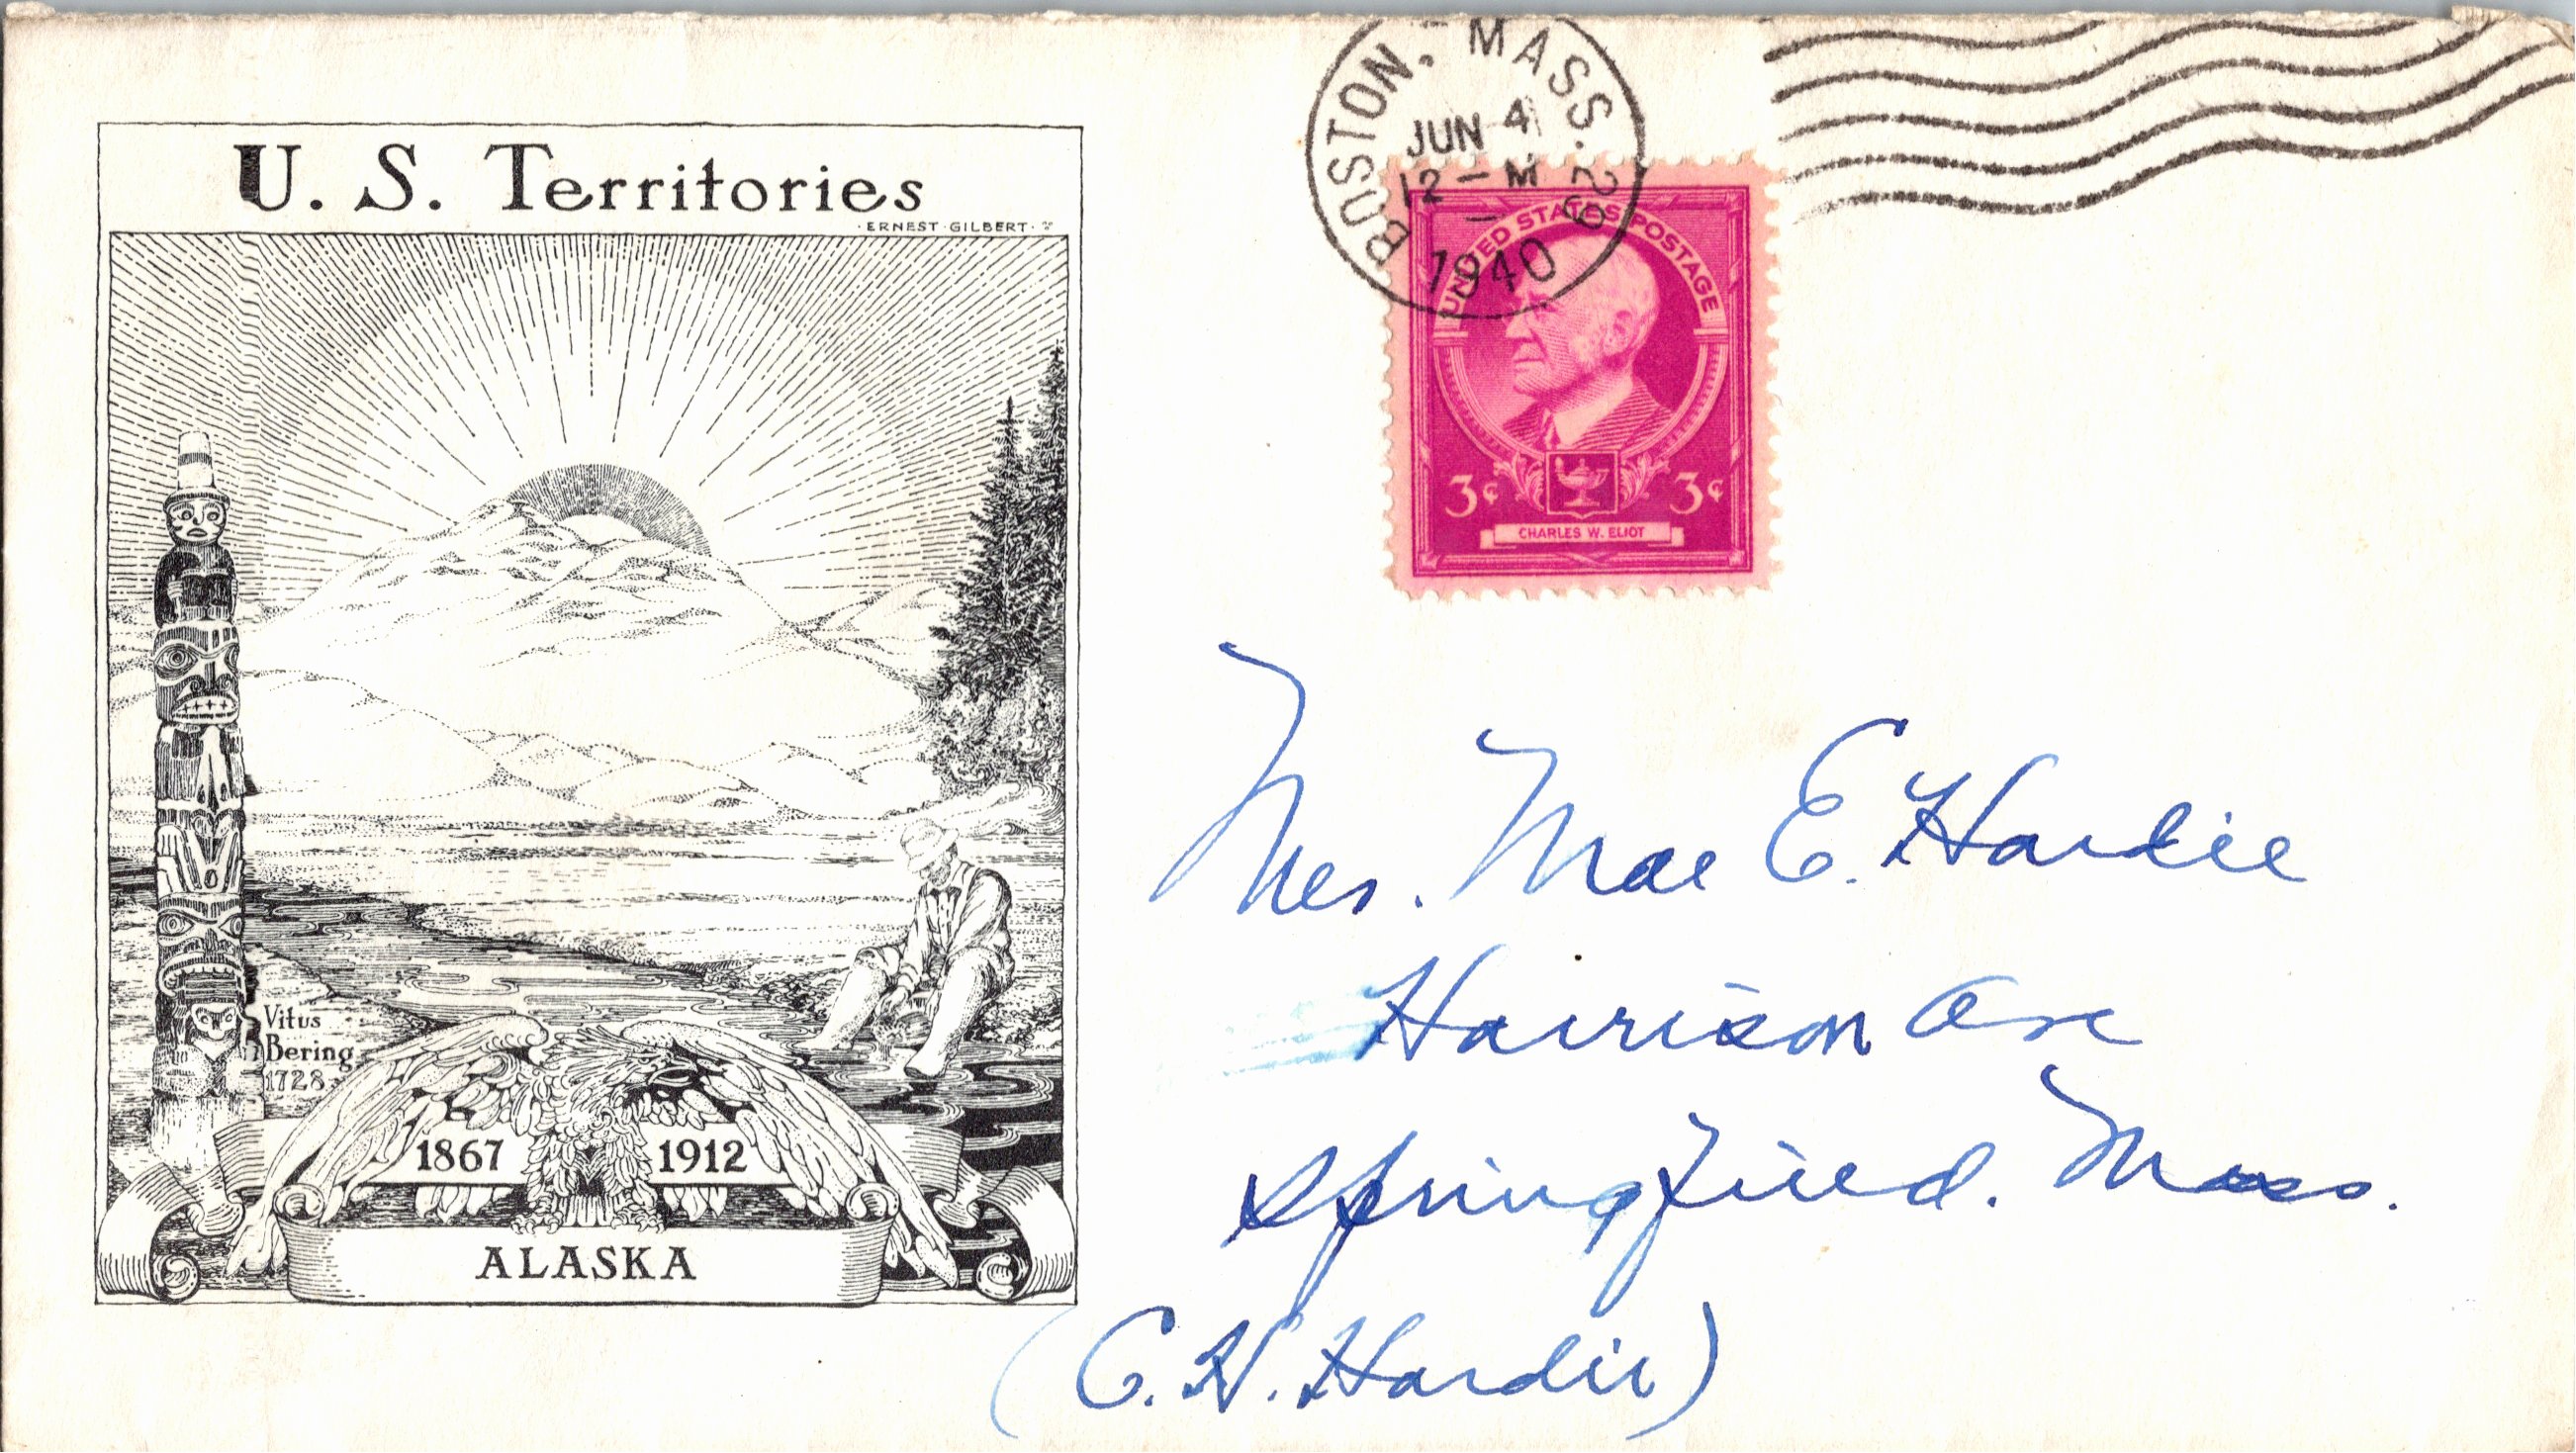 U. S. Territories
ERNEST GILBERT
Vitus
Bering
1728
1867 1912
ALASKA
BOSTON, MASS. 29
JUN 4
12 - M
1940
UNITED STATES POSTAGE
3¢ 3¢
CHARLES W. ELIOT
Mrs. Mae E. Hardie
Harrison Ave
Springfield. Mass.
(C. H. Hardie)